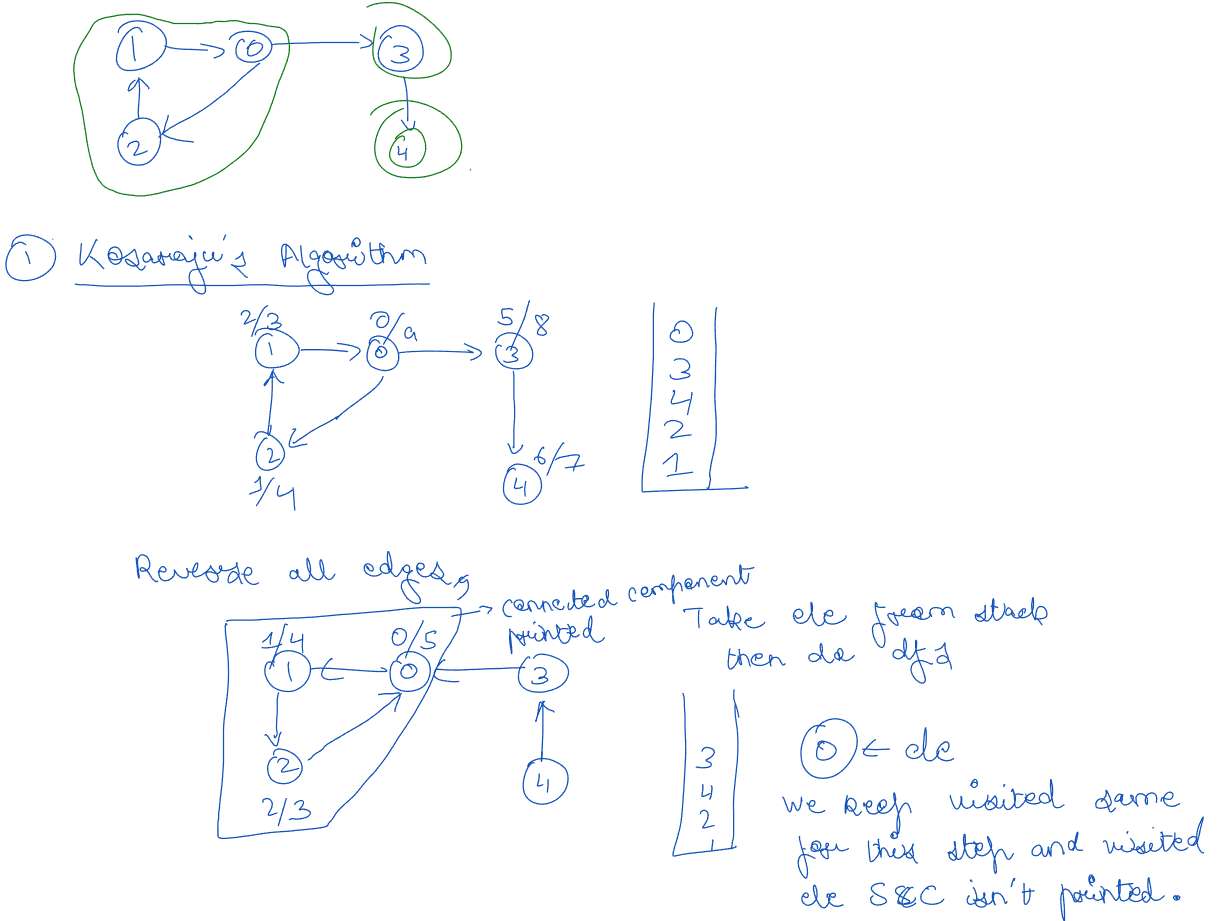 1 0 3
2 4
1 Kosaraju's Algorithm
2/3 0/9 5/8
1 0 3
2 6/7
1/4 4
0
3
4
2
1
Reverse all edges,
connected component
printed
Take ele from stack
then do dfs
1/4 0/5
1 0 3
2 4
2/3
3
4
2
1
0 ← ele
We keep visited same
for this step and visited
ele SCC isn't printed.